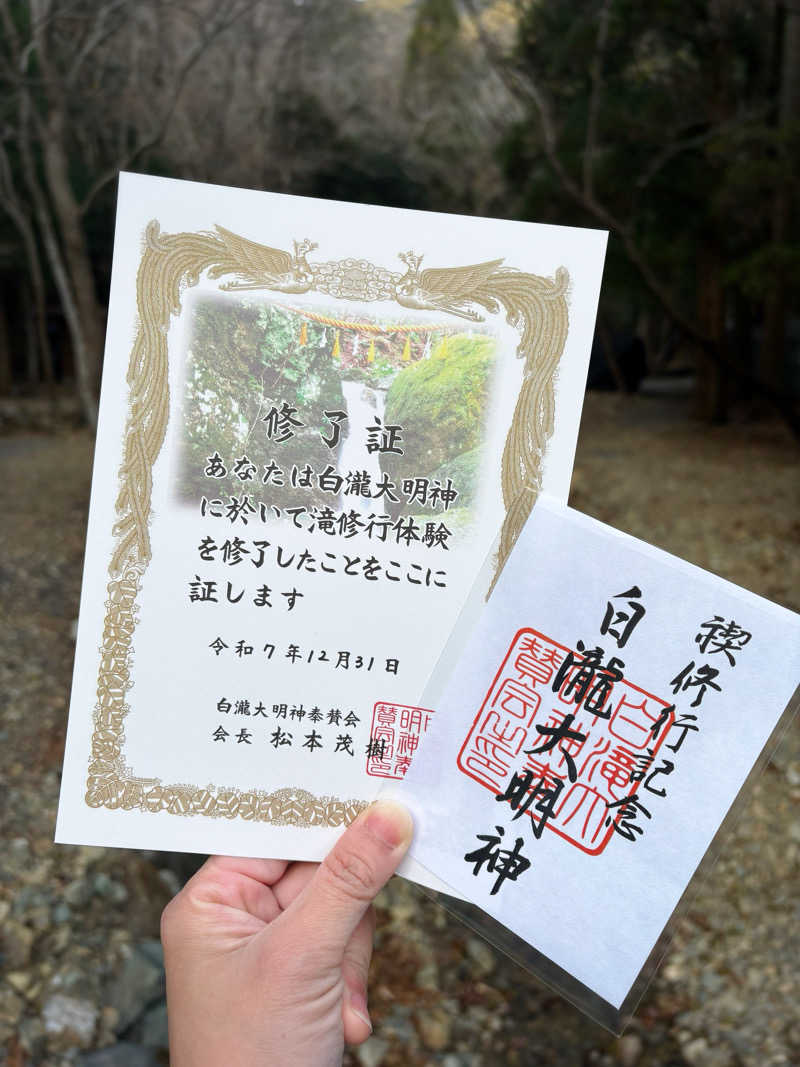 修了証
あなたは白瀧大明神
に於いて滝修行体験
を修了したことをここに
証します
令和7年12月31日
白瀧大明神奉賛会
会長 松本茂樹
禊修行記念
白瀧大明神